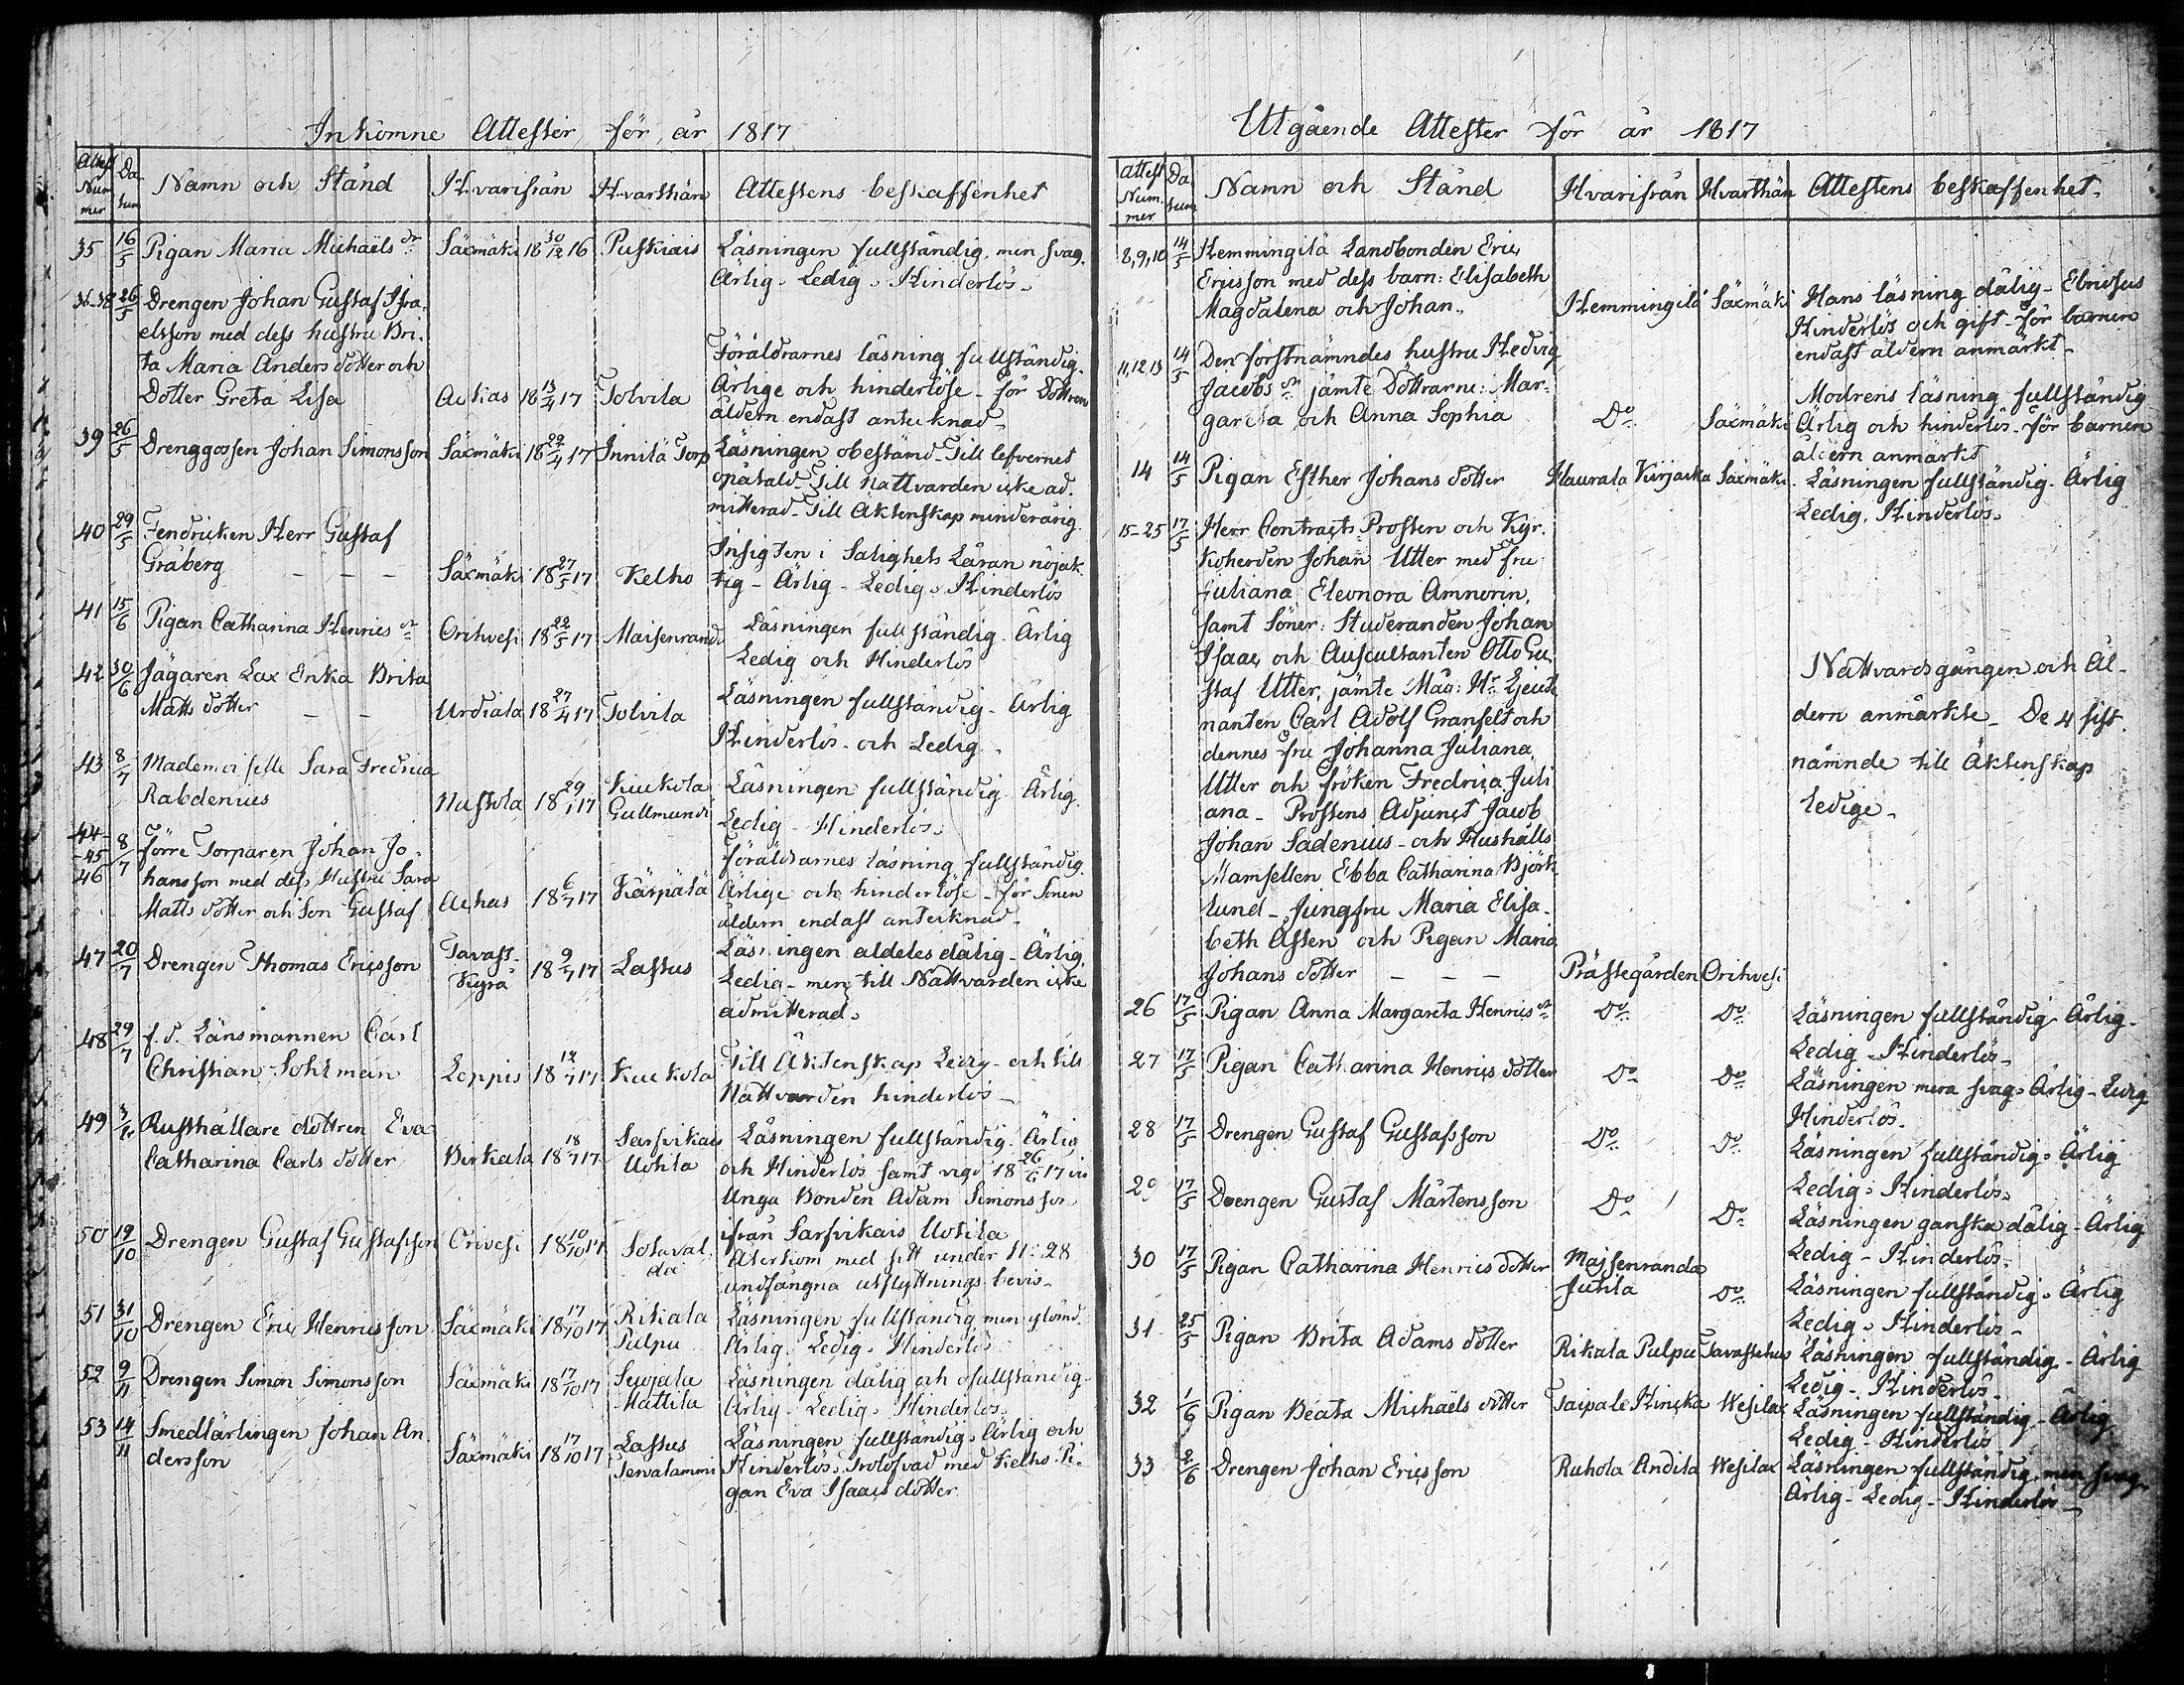 Inkomne Attester för år 1817
Attest Nummer Datum Namn och Stånd Hvarifrån Hvarthän Attestens beskaffenhet
35 16/5 Pigan Maria Michaëls dr Säxmäki 18 30/12 16 Puskiais Läsningen fullständig, men svag.
Ärlig. Ledig. Hinderlös.
36-38 26/5 Drengen Johan Gustaf Isra-
elsson med dess hustru Bri-
ta Maria Anders dotter och
Dotter Greta Lisa Ackas 18 13/4 17 Tolvila
Föräldrarnes läsning fullständig.
Ärlige och hinderlöse - för Dottren
åldern endast antecknad
39 26/5 Drenggossen Johan Simonsson Säxmäki 18 29/4 17 Innilä Torp Läsningen obestånd. Till lefvernet
opåtald. Till Nattvarden icke ad-
mitterad. Till Äktenskap minderårig
40 29/5 Fendricken Herr Gustaf
Gråberg - - - Säxmäki 18 27/5 17 Kelho
Insigten i Salighets Läran nöjak-
tig - Ärlig - Ledig. Hinderlös
41 15/6 Pigan Catharina Henrics dr Orihvesi 18 22/5 17 Maisenranda Läsningen fullständig. Ärlig
Ledig och Hinderlös
42 30/6 Jägaren Lax Enka Brita
Matts dotter - - Urdiala 18 27/4 17 Tolvila Läsningen fullständig - Ärlig
Hinderlös och Ledig.
43 8/7 Mademoiselle Sara Fredrica
Rabdenius Nastola 18 29/1 17 Kuckola
Gullmundi
Läsningen fullständig. Ärlig.
Ledig - Hinderlös.
44-
-45
46 8/7 Förre Torparen Johan Jo-
hansson med dess Hustru Sara
Matts dotter och Son Gustaf Achas 18 6/7 17 Kärpälä
Föräldrarnes läsning fullständig.
Ärlige och hinderlöse - för Sonen
åldern endast antecknad
47 20/7 Drengen Thomas Ericsson Tavast-
Kyrå 18 9/7 17 Lassus
Läsningen aldeles dålig - Ärlig.
Ledig - men till Nattvarden icke
admitterad.
48 29/7 f.d. Länsmannen Carl
Christian Sohlman Loppis 18 12/7 17 Kuckola
Till Äktenskap Ledig - och till
Nattvarden hinderlös -
49 Rusthållare dottren Eva
Catharina Carls dotter Birkala 18 18/7 17 Sarsvikais
Uotila
Läsningen fullständig. Ärlig
och Hinderlös samt vigd 18 26/6 17 vid
Unga Bonden Adam Simonsson
ifrån Sarsvikais Uotila
50 19/10 Drengen Gustaf Gustafsson Orivesi 18 10/10 17 Sotaval-
da
Återkom med sitt under N: 28
undfångna utflyttnings bevis
51 31/10 Drengen Eric Henricsson Säxmäki 18 17/10 17 Rikala
Pulpu
Läsningen fullständig men glömd.
Ärlig. Ledig. Hinderlös
52 9/11 Drengen Simon Simonsson Säxmäki 18 17/10 17 Suojala
Mattila
Läsningen dålig och ofullständig
Ärlig - Ledig. Hinderlös.
53 14/11 Smedlärlingen Johan An-
dersson Säxmäki 18 17/10 17 Lassus
Tervalammi
Läsningen fullständig. Ärlig och
Hinderlös. Trolofvad med Kelho Pi-
gan Eva Isaacs dotter
Utgående Attester för år 1817
Attest Nummer Datum Namn och Stånd Hvarifrån Hvarthän Attestens beskaffenhet.
8,9,10 14/5 Hemmingilä Landbonden Eric
Ericsson med dess barn: Elisabeth
Magdalena och Johan. Hemmingilä Säxmäki
Hans läsning dålig - Ebriosus
Hinderlös och gift - för barnen
endast åldern anmärkt -
11,12,13 14/5 Den förstnämndes hustru Hedvig
Jacobs dr jämte Döttrarne: Mar-
gareta och Anna Sophia Do Säxmäki
Modrens läsning fullständig
Ärlig och hinderlös - för barnen
åldern anmärkt
14 14/5 Pigan Esther Johans dotter Haurala Kirjacka Säxmäki Läsningen fullständig. Ärlig
Ledig. Hinderlös.
15-25 17/5 Herr Contracts Prosten och Kyr-
koherden Johan Utter med fru
Juliana Eleonora Amnorin,
samt Söner: Studeranden Johan
Isaac och Auscultanten Otto Gu-
staf Utter, jämte Måg: Hr Lieute-
nanten Carl Adolf Granfelt och
dennes fru Johanna Juliana
Utter och fröken Fredrica Juli-
ana - Prostens Adjunct Jacob
Johan Sadenius - och Hushålls
Mamsellen Ebba Catharina Björk-
lund - Jungfru Maria Elisa-
beth Assen och Pigan Maria
Johans dotter - - - Prästegården Orihvesi
Nattvardsgången och Ål-
dern anmärkte - De 4 sist-
nämnde till Äktenskap
Ledige -
26 17/5 Pigan Anna Margareta Henrics dr Do Do Läsningen fullständig. Ärlig -
Ledig - Hinderlös -
27 17/5 Pigan Catharina Henrics dotter Do Do Läsningen mera svag. Ärlig - Ledig
Hinderlös.
28 17/5 Drengen Gustaf Gustafsson Do Do Läsningen fullständig. Ärlig
Ledig. Hinderlös.
29 17/5 Drengen Gustaf Mårtensson Do Do Läsningen ganska dålig - Ärlig
Ledig - Hinderlös.
30 17/5 Pigan Catharina Henrics dotter Majsenranda
Jutila Do Läsningen fullständig. Ärlig
Ledig. Hinderlös -
31 25/5 Pigan Brita Adams dotter Rikala Pulpu Tavastehus Läsningen fullständig - Ärlig
Ledig - Hinderlös -
32 1/6 Pigan Beata Michaëls dotter Taipale Hincka Wesilax Läsningen fullständig - Ärlig
Ledig - Hinderlös
33 2/6 Drengen Johan Ericsson Ruhola Andila Wesilax Läsningen fullständig, men svag
Ärlig - Ledig - Hinderlös -